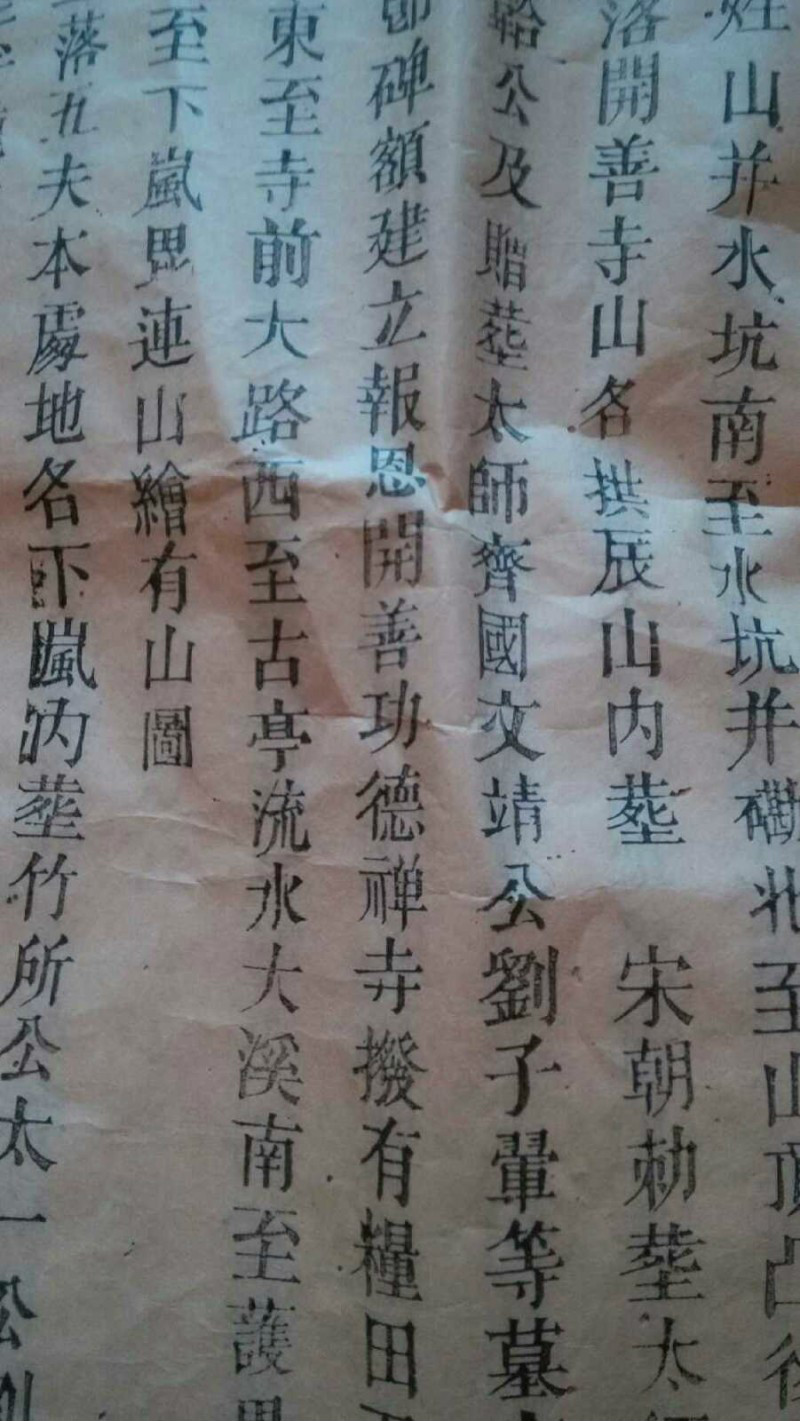 姓山并水坑南至水坑并磡北至山頂凸
落開善寺山名拱辰山内塟　宋朝勅塟太師
韐公及贈塟太師齊國文靖公劉子翬等墓
碑額建立報恩開善功德禅寺撥有糧田
東至寺前大路西至古亭流水大溪南至護
至下嵐畀連山繪有山圖
落五夫本處地名下嵐内塟竹所公太一公